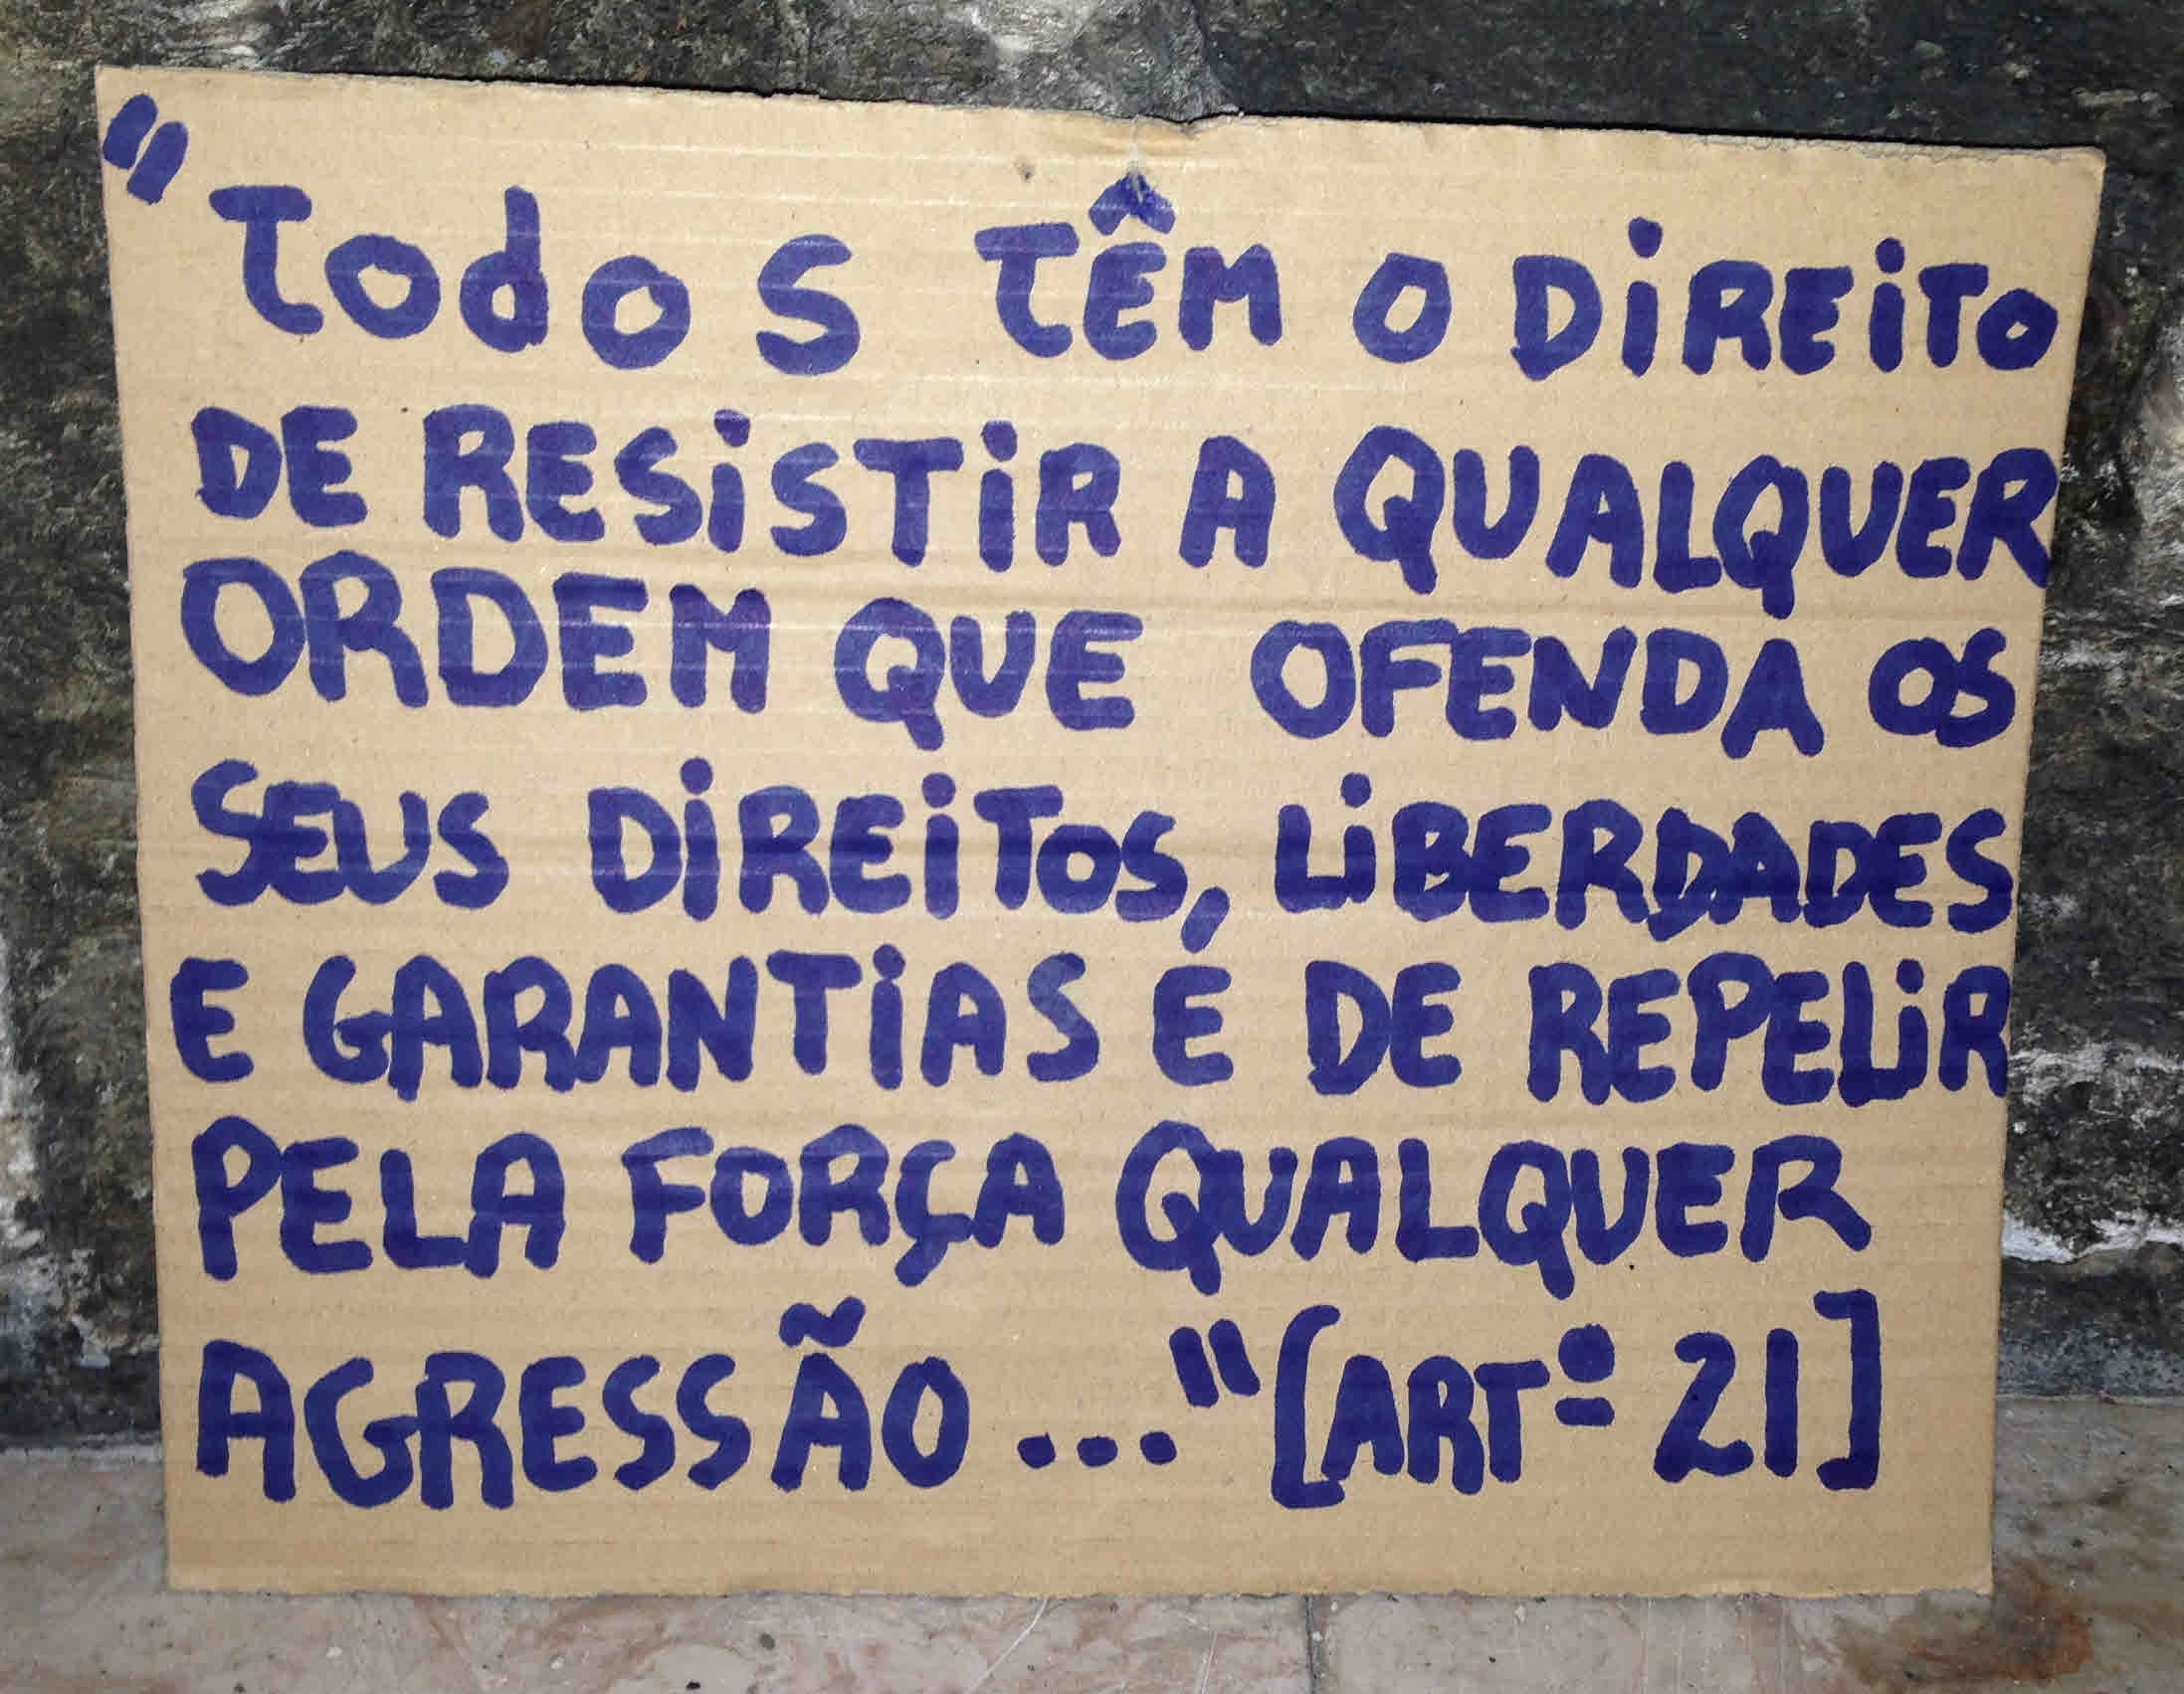 "Todos TÊM O DiREiTO
DE RESiSTiR A QUALQUER
ORDEM QUE OFENDA OS
SEUS DiREiTOS, LiBERDADES
E GARANTiAS É DE REPELiR
PELA FORÇA QUALQUER
AGRESSÃO..." [ARTº 21]